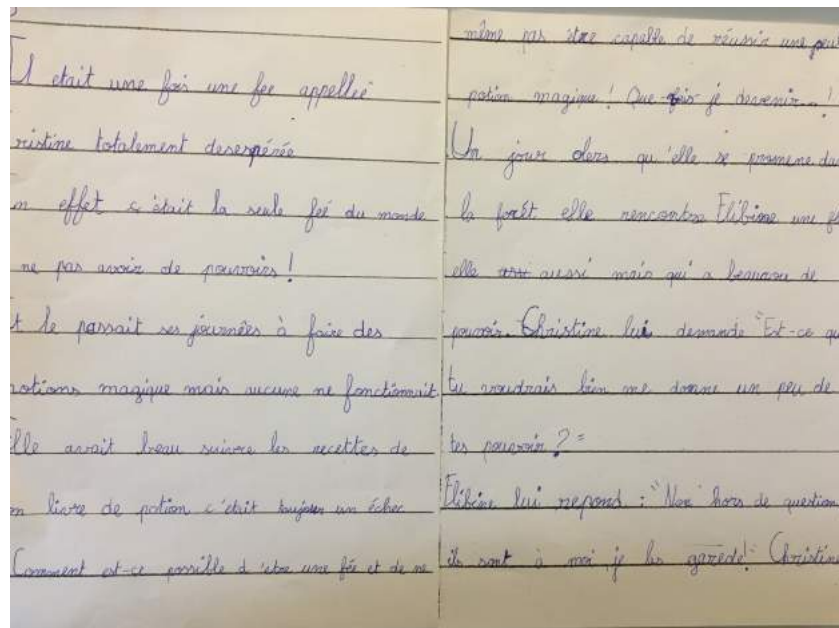 Il était une fois une fee appellée
ristine totalement desespérée
n effet c'était la seule feé du monde
ne pas avoir de pouvoirs !
t le passait ses journées à faire des
otions magique mais aucune ne fonctionnait
lle avait beau suivre les recettes de
n livre de potion c'était toujours un échec
Comment est-ce possible d'etre une fée et de ne
même pas être capable de réussir une peu
potion magique ! Que je devenir...!
Un jour alors qu'elle se promene da
la forêt elle rencontra Elibine une f
elle aussi mais qui a beaucou de
pouvoir. Christine lui demande "Est-ce qu
tu voudrais bin me donne un peu de
tes pouvoir ? "
Elibine lui repond : "Non" hors de question
ils sont à moi, je les garede!" Christine